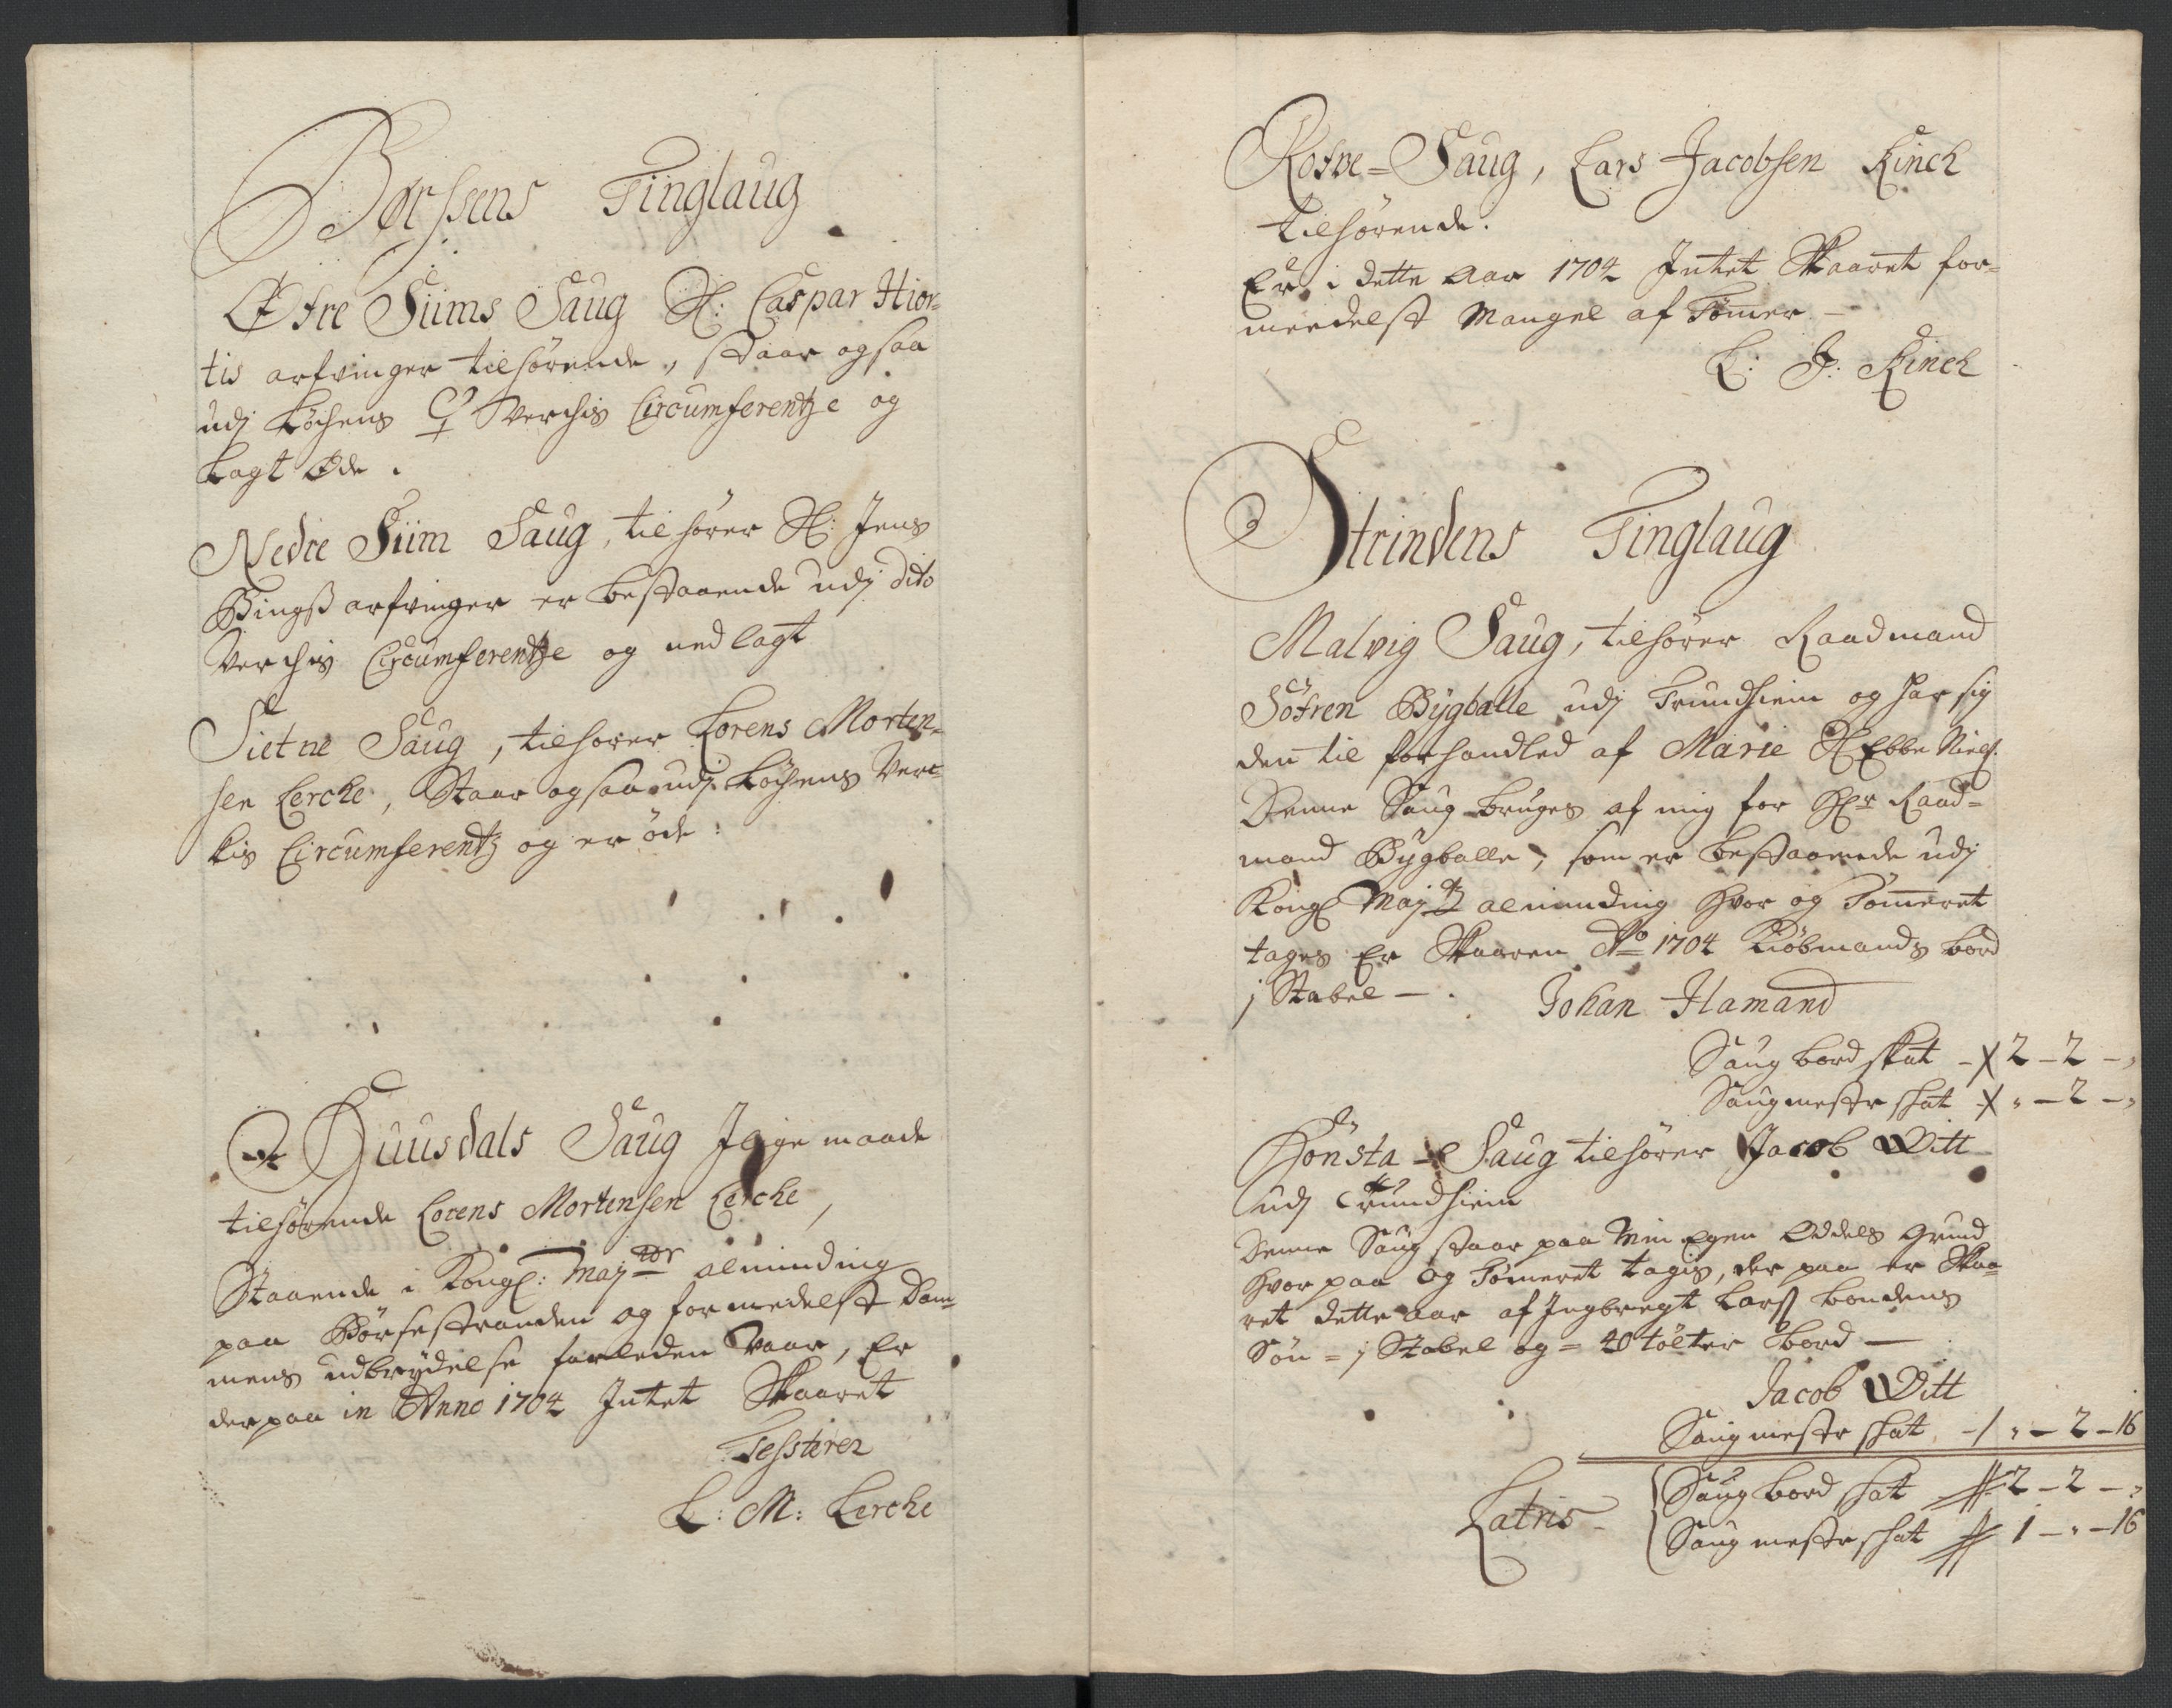 Børssens Tinglaug
Øfre Siims Saug S: Caspar Hior-
tis arfvinger tilhørende, staar ogsaa
udj Løchens ♀ Verchis Circumferentze og
Lagt Øde.
Nedre Siim Saug, tilhører S: Jens
Bings arfvinger er bestaaende udj dito
Verchis Circumferentze og nedlagt
Sietne Saug, tilhører Lorens Morten-
sen Lerche, Staar ogsaa udj Løchens Ver-
kis Circumferentz og er øde:
Guusdals Saug J lige maade
tilhørende Lorens Mortensen Lerche,
Staaende i Kongl: Maj:ter alminding
paa Børsestranden og formedelst Dam-
mens udbrydelse forleden Vaar, Er
derpaa in Anno 1704 Intet Skaaret
Testerer
L: M: Lerche
Rosve-Saug, Lars Jacobsen Kinch
tilhørende.
Er i dette Aar 1704 Intet Skaaret for-
meedelst Mangel af Tømer -
L: J: Kinch
Strindens Tinglaug
Malvig Saug, tilhører Raadmand
Søfren Bygballe udj Trundhiem og har sig
den til forhandled af Marie S Ebbe Niels:
Denne Saug bruges af mig for Hr Raad-
mand Bygballe, som er bestaaende udj
Kongl Maj:ts alminding hvor og Tømeret
tages Er Skaaren Ao 1704 Kiøbmands bord
j Stabel - .
Johan Hamand
Saug bord skat - 2 - 2 - "
Saugmester skat " - 2 - "
Hønsta - Saug tilhører Jacob Witt
udj Trundhiem
Denne Saug staar paa Min Egen Oddels Grund
hvor paa og Tømeret tagis, der paa er Skaa-
ret dette aar af Ingebregt Lars bondens
Søn = j Stabel og = 40 tolter bord -
Jacob Witt
Saugmester skat - " - 2 - 16
Latris - Saug bord skat 2 - 2 - "
Saugmester skat 1 - " - 16